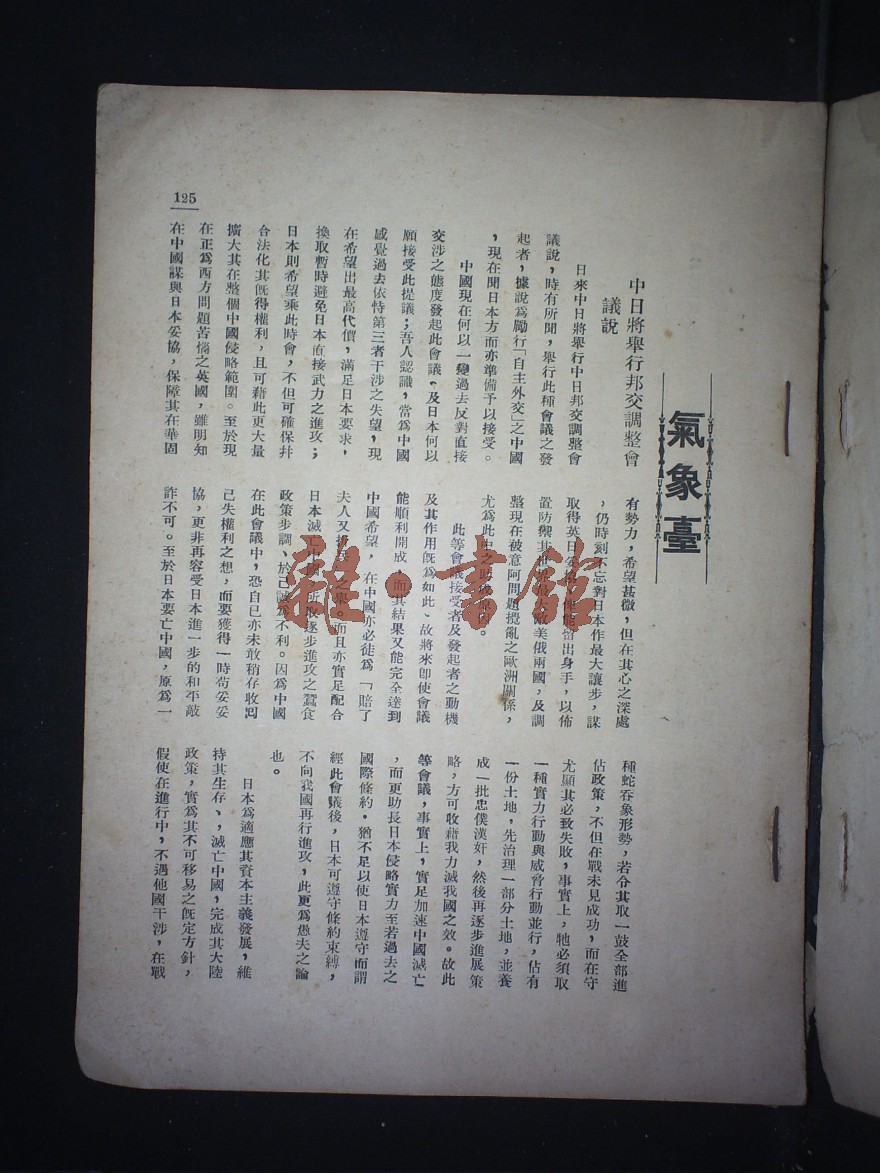 氣象臺
中日將舉行邦交調整會
議說
日來中日將舉行中日邦交調整會
議說，時有所聞，舉行此種會議之發
起者，據說為勵行「自主外交」之中國
，現在聞日本方面亦準備予以接受。
中國現在何以一變過去反對直接
交涉之態度發起此會議、及日本何以
願接受此提議；吾人認識，當為中國
感覺過去依恃第三者干涉之失望，現
在希望出最高代價，滿足日本要求，
換取暫時避免日本直接武力之進攻；
日本則希望乘此時會，不但可確保并
合法化其既得權利，且可藉此更大量
擴大其在整個中國侵略範圍。至於現
在正為西方問題苦惱之英國，雖明知
在中國謀與日本妥協，保障其在華固
有勢力，希望甚微，但在其心之深處
，仍時刻不忘對日本作最大讓步，謀
取得英日妥協，俾能騰出身手，以佈
置防禦其世界最大敵美俄兩國，及調
整現在被意阿問題攪亂之歐洲關係，
尤為此中之助成原因。
此等會議接受者及發起者之動機
及其作用既為如此、故將來即使會議
能順利開成，而其結果又能完全達到
中國希望，在中國亦必徒為「賠了
夫人又折兵」之舉。而且亦實足配合
日本滅亡中國，所取逐步進攻之蠶食
政策步調、於己誠為不利。因為中國
在此會議中，恐自已亦未敢稍存收回
已失權利之想，而要獲得一時苟妥妥
協，更非再容受日本進一步的和平敲
詐不可。至於日本要亡中國，原為一
種蛇吞象形勢，若令其取一鼓全部進
佔政策，不但在戰未見成功，而在守
尤顯其必致失敗，事實上，牠必須取
一種實力行動與威脅行動並行，佔有
一份土地，先治理一部分土地，並養
成一批忠僕漢奸，然後再逐步進展策
略，方可收藉我力滅我國之效。故此
等會議，事實上，實足加速中國滅亡
，而更助長日本侵略實力至若過去之
國際條約，猶不足以使日本遵守而謂
經此會議後，日本可遵守條約束縛，
不向我國再行進攻，此更為愚夫之論
也。
日本為適應其資本主義發展，維
持其生存、，滅亡中國，完成其大陸
政策，實為其不可移易之既定方針，
假使在進行中，不遇他國干涉，在戰
125
雜·書館